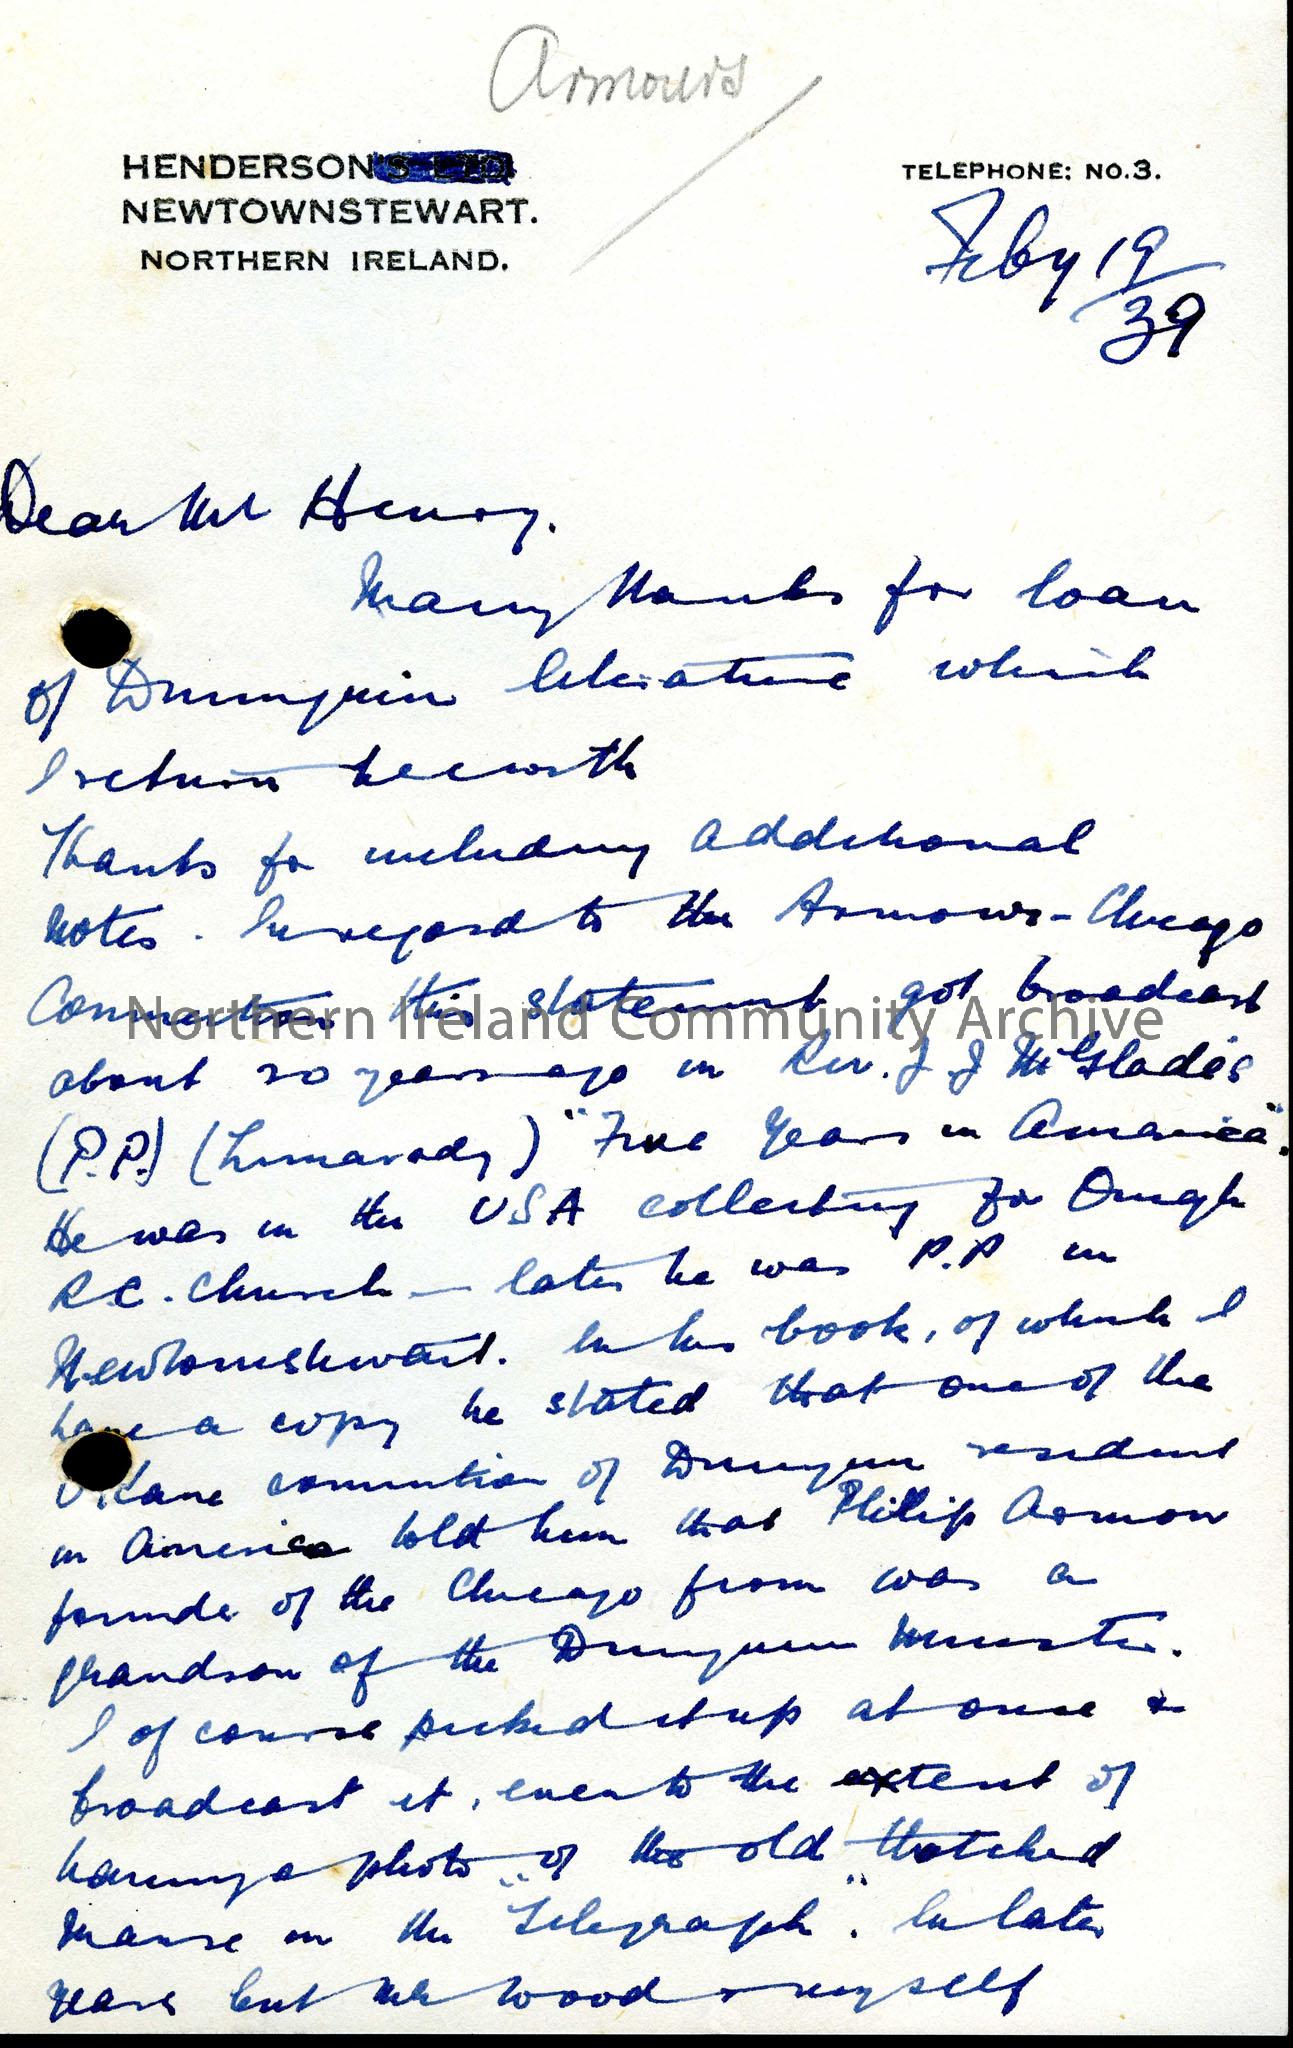 Armours
HENDERSON'S LTD.
NEWTOWNSTEWART.
NORTHERN IRELAND.
TELEPHONE: NO.3.
Feby 19
39
Dear Mr Henry.
Many thanks for loan
of Drumquin literature which
I return herewith
Thanks for including additional
notes. In regard to the Armours-Chicago
Connection this statement got broadcast
about 20 years ago in Rev. J. J McGlade's
(P.P.) (Limavady) "Five Years in America".
He was in the USA collecting for Omagh
R.C. Church - later he was P.P in
Newtownstewart. In his book, of which I
have a copy he stated that one of the
O'Kane connection of Drumquin resident
in America told him that Philip Armour
founder of the Chicago firm was a
grandson of the Drumquin Minister.
I of course picked it up at once &
broadcast it, even to the extent of
having a photo of the old thatched
Manse in the "Telegraph". In later
years both Mr Wood & myself
Northern Ireland Community Archive